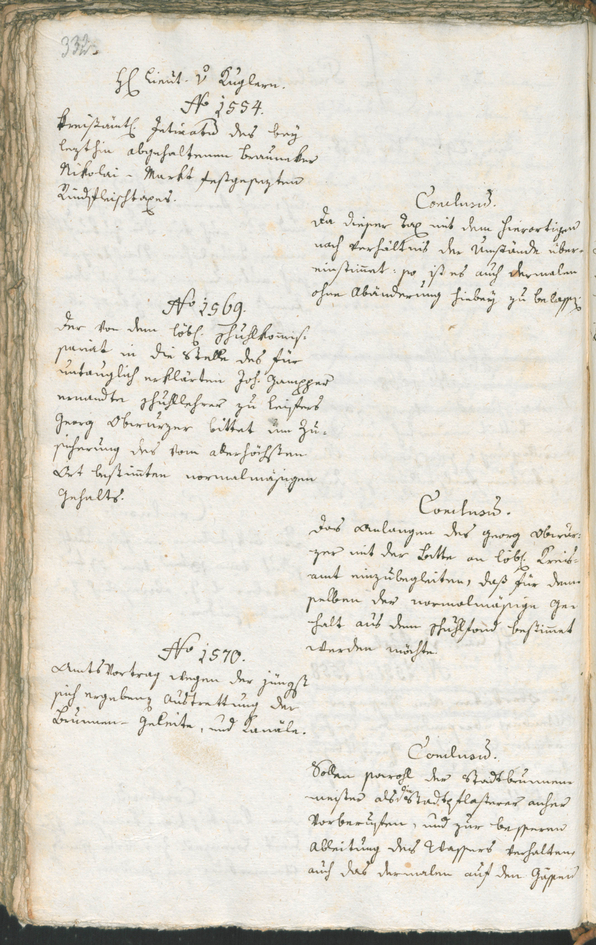 332.
H. Lieut. v Kuglern.
No 1554.
Kreisämtl. Intimation des bey
letzthin abgehaltenem Braunecker
Nikolai-Markt festgesezten
Rindfleischtaxes.
Conclusum.
Da dieser Tax mit dem hierortigen
nach Verhältnis der Umstände über-
einstimmet: so ist es auch dermalen
ohne Abänderung hiebey zu belassen.
No 1569.
Der von dem löbl. Schuhlkommis-
sariat in die Stelle des für
untauglich erklärten Joh. Gampper
ernandte Schullehrer zu Leifers
Georg Oberurzer bittet um Zu-
sicherung des vom allerhöchsten
Ort bestimten normalmäsigen
Gehalts.
Conclusum.
Das Anlangen des Georg Oberur-
zer mit der Bitte an löbl. Kreis-
amt einzubegleiten, daß für dem-
selben der normalmäsige Ge-
halt aus dem Schuhlfond bestimmet
werden möchte.
No 1570.
AmtsVortrag wegen der jüngst
sich ergebenen Austrettung der
Brunnen-Geleite, und Kanäle.
Conclusum.
Sollen sowohl der Stadtbrunnen-
meister als der Stadtpflasterer anher
vorberufen, und zur besseren
Ableitung des Wassers verhalten
auch das dermalen auf den Gassen